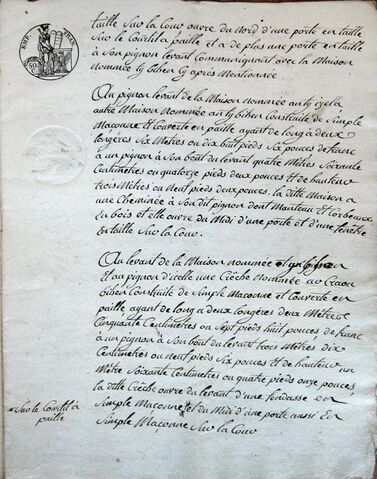 EMP. FRAN.
50
taille Sur la Cour ouvre du Nord d'une porte en taille
Sur le Courtil à paille et a de plus une porte en taille
à Son pignon levant Communiquant avec la Maison
nommée ty bihen cy après Mentionnée
Au pignon levant de la Maison nommée an ty
autre Maison Nommée an ty bihen Construite de Simple
Maçonne et Couverte en paille ayant de long à deux
longères Six Mètres ou dix huit pieds Six pouces de franc
à un pignon à Son bout du levant quatre Mètres Soixante
Centimètres ou quatorze pieds deux pouces et de hauteur
trois Mètres ou Neuf pieds deux pouces. la ditte Maison a
une Cheminée à Son dit pignon dont Manteau et Corbeaux
En bois et elle ouvre du Midi d'une porte et d'une fenêtre
En taille Sur la Cour.
Au levant de la Maison nommée
Et au pignon d'icelle une Crèche Nommée ar Craou
bihen Construite de Simple Maçonne et Couverte en
paille, ayant de long à deux longères deux Mètres
Cinquante Centimètres ou Sept pieds huit pouces, de franc
à un pignon à Son bout du levant trois Mètres dix
Centimètres ou neuf pieds Six pouces et de hauteur un
Mètre Soixante Centimètres ou quatre pieds onze pouces,
la ditte Crèche ouvre du levant d'une fendasse en
Simple Maçonne et du Midi d'une porte aussi En
Simple Maçonne Sur la Cour
Sur le Courtil à
paille